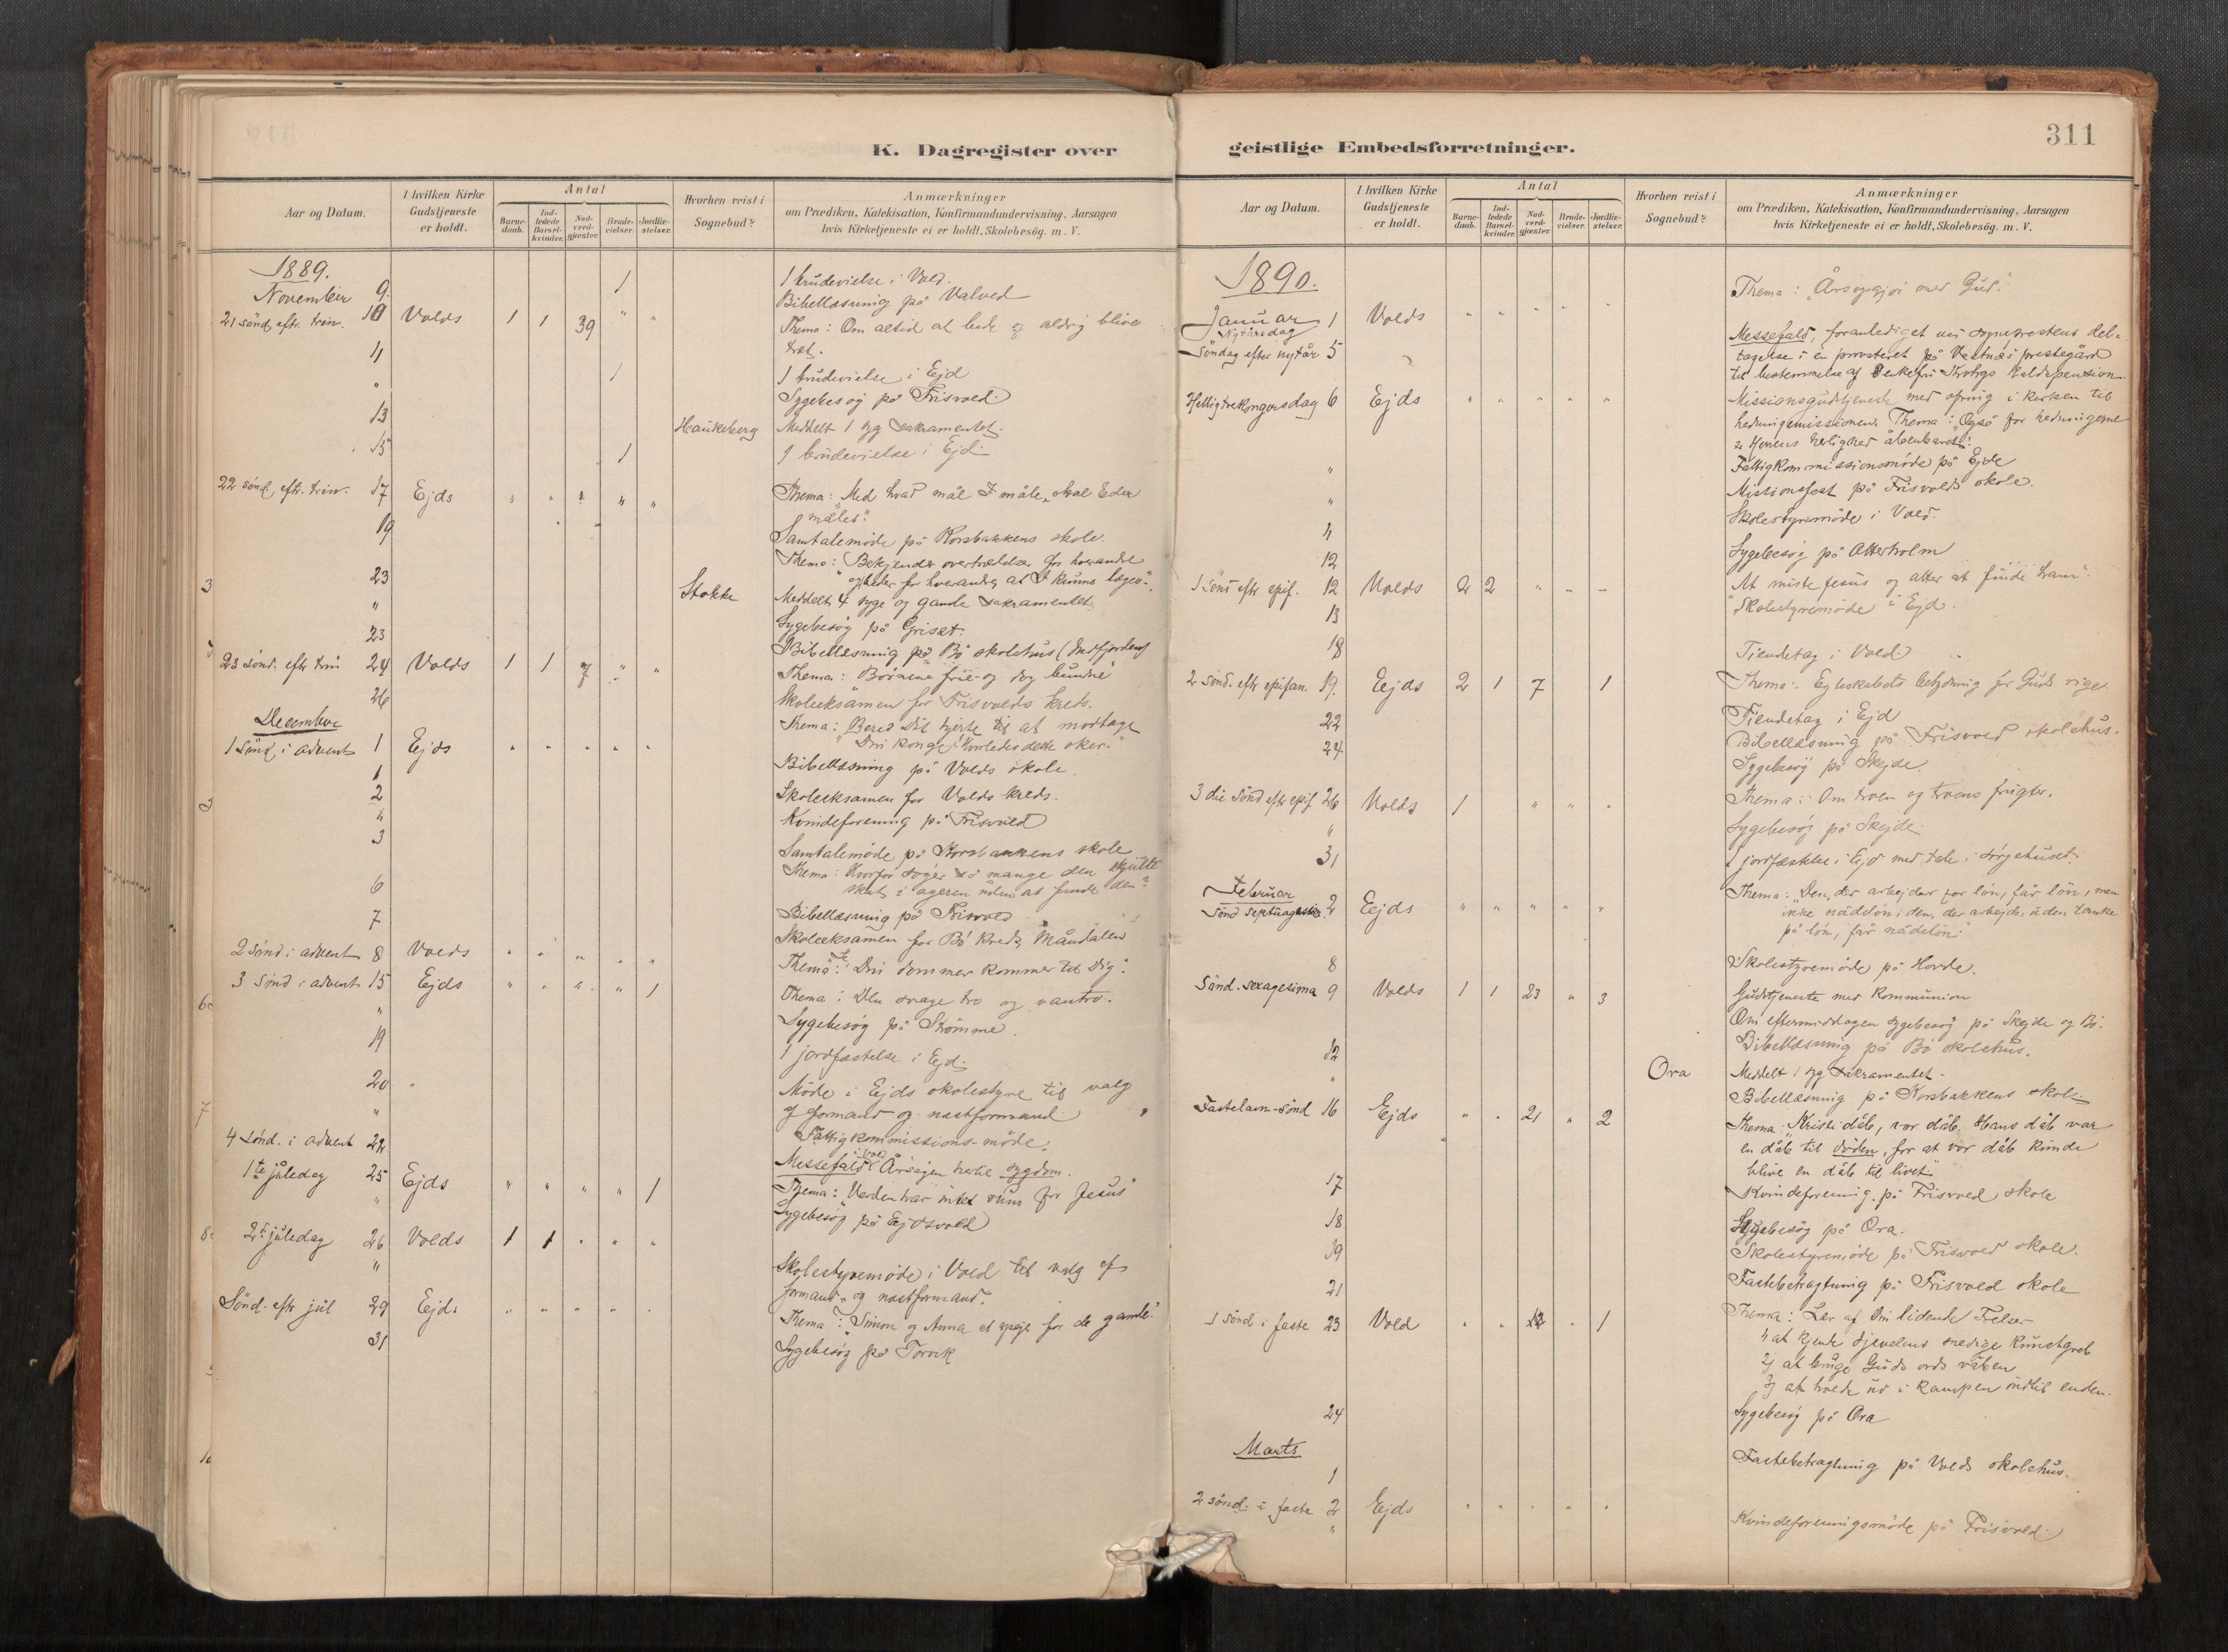 K. Dagregister over
Aar og Datum.
I hvilken Kirke Gudstjeneste er holdt.
Antal
Barne-daab.
Ind-ledede Barsel-kvinder.
Nad-verd-gjæster.
Brude-vielser.
Jordfæ-stelser.
Hvorhen reist i Sognebud?
Anmærkninger
om Prædiken, Katekisation, Konfirmandundervisning, Aarsagen
hvis Kirketjeneste ei er holdt, Skolebesög. m. V.
1889.
November 9. 1 1 brudevielse i Vold.
Bibellæsning på Valved
21 sönd. eftr. trin. 10 Volds 1 1 39 " " Thema: Om altid at bede og aldrig blive
træt.
11 1 1 brudevielse i Ejd
" Sygebesøg på Frisvold.
13 Haukeberg Meddelt 1 syg sakramentet.
15 1 1 brudevielse i Ejd
22 sönd. eftr. trin. 17 Ejds " " " " " Thema: Med hvad mål I måle, skal Eder
måles."
19 Samtalemöde på Korsbakkens skole.
Thema: Bekjender overtrædelser for hverandre
og beder for hverandre, at I kunne læges".
23 Stokke Meddelt 4 syge og gamle sakramentet
" Sygebesøg på Griset.
23 Bibellæsning på Bö skolehus (Indfjorden)
23 sönd. eftr trin 24 Volds 1 1 7 " " Thema: Börnene frie og dog bundne
26 Skoleeksamen for Frisvolds kreds.
December
1 Sönd. i advent 1 Ejds " " " " " Thema: Bered dit hjerte til at modtage
Din konge! Hvorledes dette sker."
1 Bibellæsning på Volds skole.
2 Skoleeksamen for Volds kreds.
" Kvindeforening på Frisvold
3 Samtalemöde på Korsbakkens skole
Thema: Hvorfor söger så mange den skjulte
skat i ageren uden at finde den?
6 Bibellæsning på Frisvold
7 Skoleeksamen for Bö kreds, Måndalen
2 Sönd i advent 8 Volds " " " " " Thema: "Din dommer kommer til Dig".
3 Sönd i advent 15 Ejds " " " " 1 Thema: Den svage tro og vantro.
" Sygebesøg på Strömme.
19 1 jordfæstelse i Ejd.
20 Möde i Ejds skolestyre til valg
af formand og næstformand
" Fattigkommissions-möde.
4 Sönd. i advent 22 Messefald i Vold Årsagen hertil sygdom.
1te juledag 25 Ejds " " " " 1 Thema: "Verden har intet rum for Jesus"
" Sygebesøg på Ejdsvold
2den juledag 26 Volds 1 1 " " "
" Skolestyremöde i Vold til valg af
formand og næstformand.
Sönd. eftr jul 29 Ejds " " " " " Thema: "Simon og Anna et spejl for de gamle".
31 Sygebesøg på Torvik
geistlige Embedsforretninger.
311
Aar og Datum.
I hvilken Kirke Gudstjeneste er holdt.
Antal
Barne-daab.
Ind-ledede Barsel-kvinder.
Nad-verd-gjæster.
Brude-vielser.
Jordfæ-stelser.
Hvorhen reist i Sognebud?
Anmærkninger
om Prædiken, Katekisation, Konfirmandundervisning, Aarsagen
hvis Kirketjeneste ei er holdt, Skolebesög. m. V.
1890.
Januar 1 Volds " " " " " Thema: "Årsopgjör med Gud."
Nytårsdag
Söndag efter nytår 5 Messefald, foranlediget ved sogneprestens del-
tagelse i en provsteret på Vestnæs prestegård
til bestemmelse af Enkefru Krohgs Naldspension.
Helligtrekongersdag 6 Ejds " " " " " Missionsgudstjeneste med ofring i kirken til
hedningemissionen. Thema: "Også for hedningerne
er Herrens herlighed åbenbaret".
" Fattigkommissionsmöde på Ejde
" Missionsfest på Frisvolds skole.
11 Skolestyremöde i Vold.
12 Sygebesøg på Otterholm
1 Sönd eftr epif. 12 Volds 2 2 " " " At miste Jesus og atter at finde ham".
13 Skolestyremöde i Ejd.
18 Tiendetag i Vold
2 Sönd. eftr epifan. 19. Ejds 2 1 7 1 Thema: Egteskabets betydning for Guds rige.
22 Tiendetag i Ejd
24 Bibellæsning på Frisvold skolehus.
Sygebesøg på Skejde.
3die Sönd eftr epif. 26 Volds 1 " " " Thema: Om troen og troens frugter.
" Sygebesøg på Skejde.
31 1 jordfæstelse i Ejd med tale i sörgehuset.
Februar
Sönd septuagesima 2 Ejds " " " " " Thema: "Den, der arbejder for lön, får lön, men
ikke nådelön; den, der arbejder uden tanke
på lön, får nådelön".
8 Skolestyremöde på Hovde.
Sönd. sexagesima 9 Volds 1 1 23 " 3 Gudstjeneste med Kommunion
Om eftermiddagen sygebesøg på Skejde og Bö.
12 Bibellæsning på Bö skolehus.
" Ora Meddelt 1 syg sakramentet.
Bibellæsning på Korsbakkens skole
Fastelavn-sönd 16 Ejds " " 21 " 2 Thema: Kristi dåb, vor dåb. Hans dåb var
en dåb til döden, for at vor dåb kunde
blive en dåb til livet".
17 Kvindeforening på Frisvold skole
18 Sygebesøg på Ora.
19 Skolestyremöde på Frisvold skole.
21 Fastebetragtning på Frisvold skole
1 Sönd i faste 23 Vold " " " 1 Thema: Lær af Din lidende Frelser
1) at kjende djevelens snedige kunstgreb
2) at bruge Guds ords våben
3) at holde ud i kampen indtil enden.
24 Sygebesøg på Ora
Marts
1 Fastebetragtning på Volds skolehus.
2 sönd. i faste 2 Ejds " " " " "
" Kvindeforeningsmöde på Frisvold